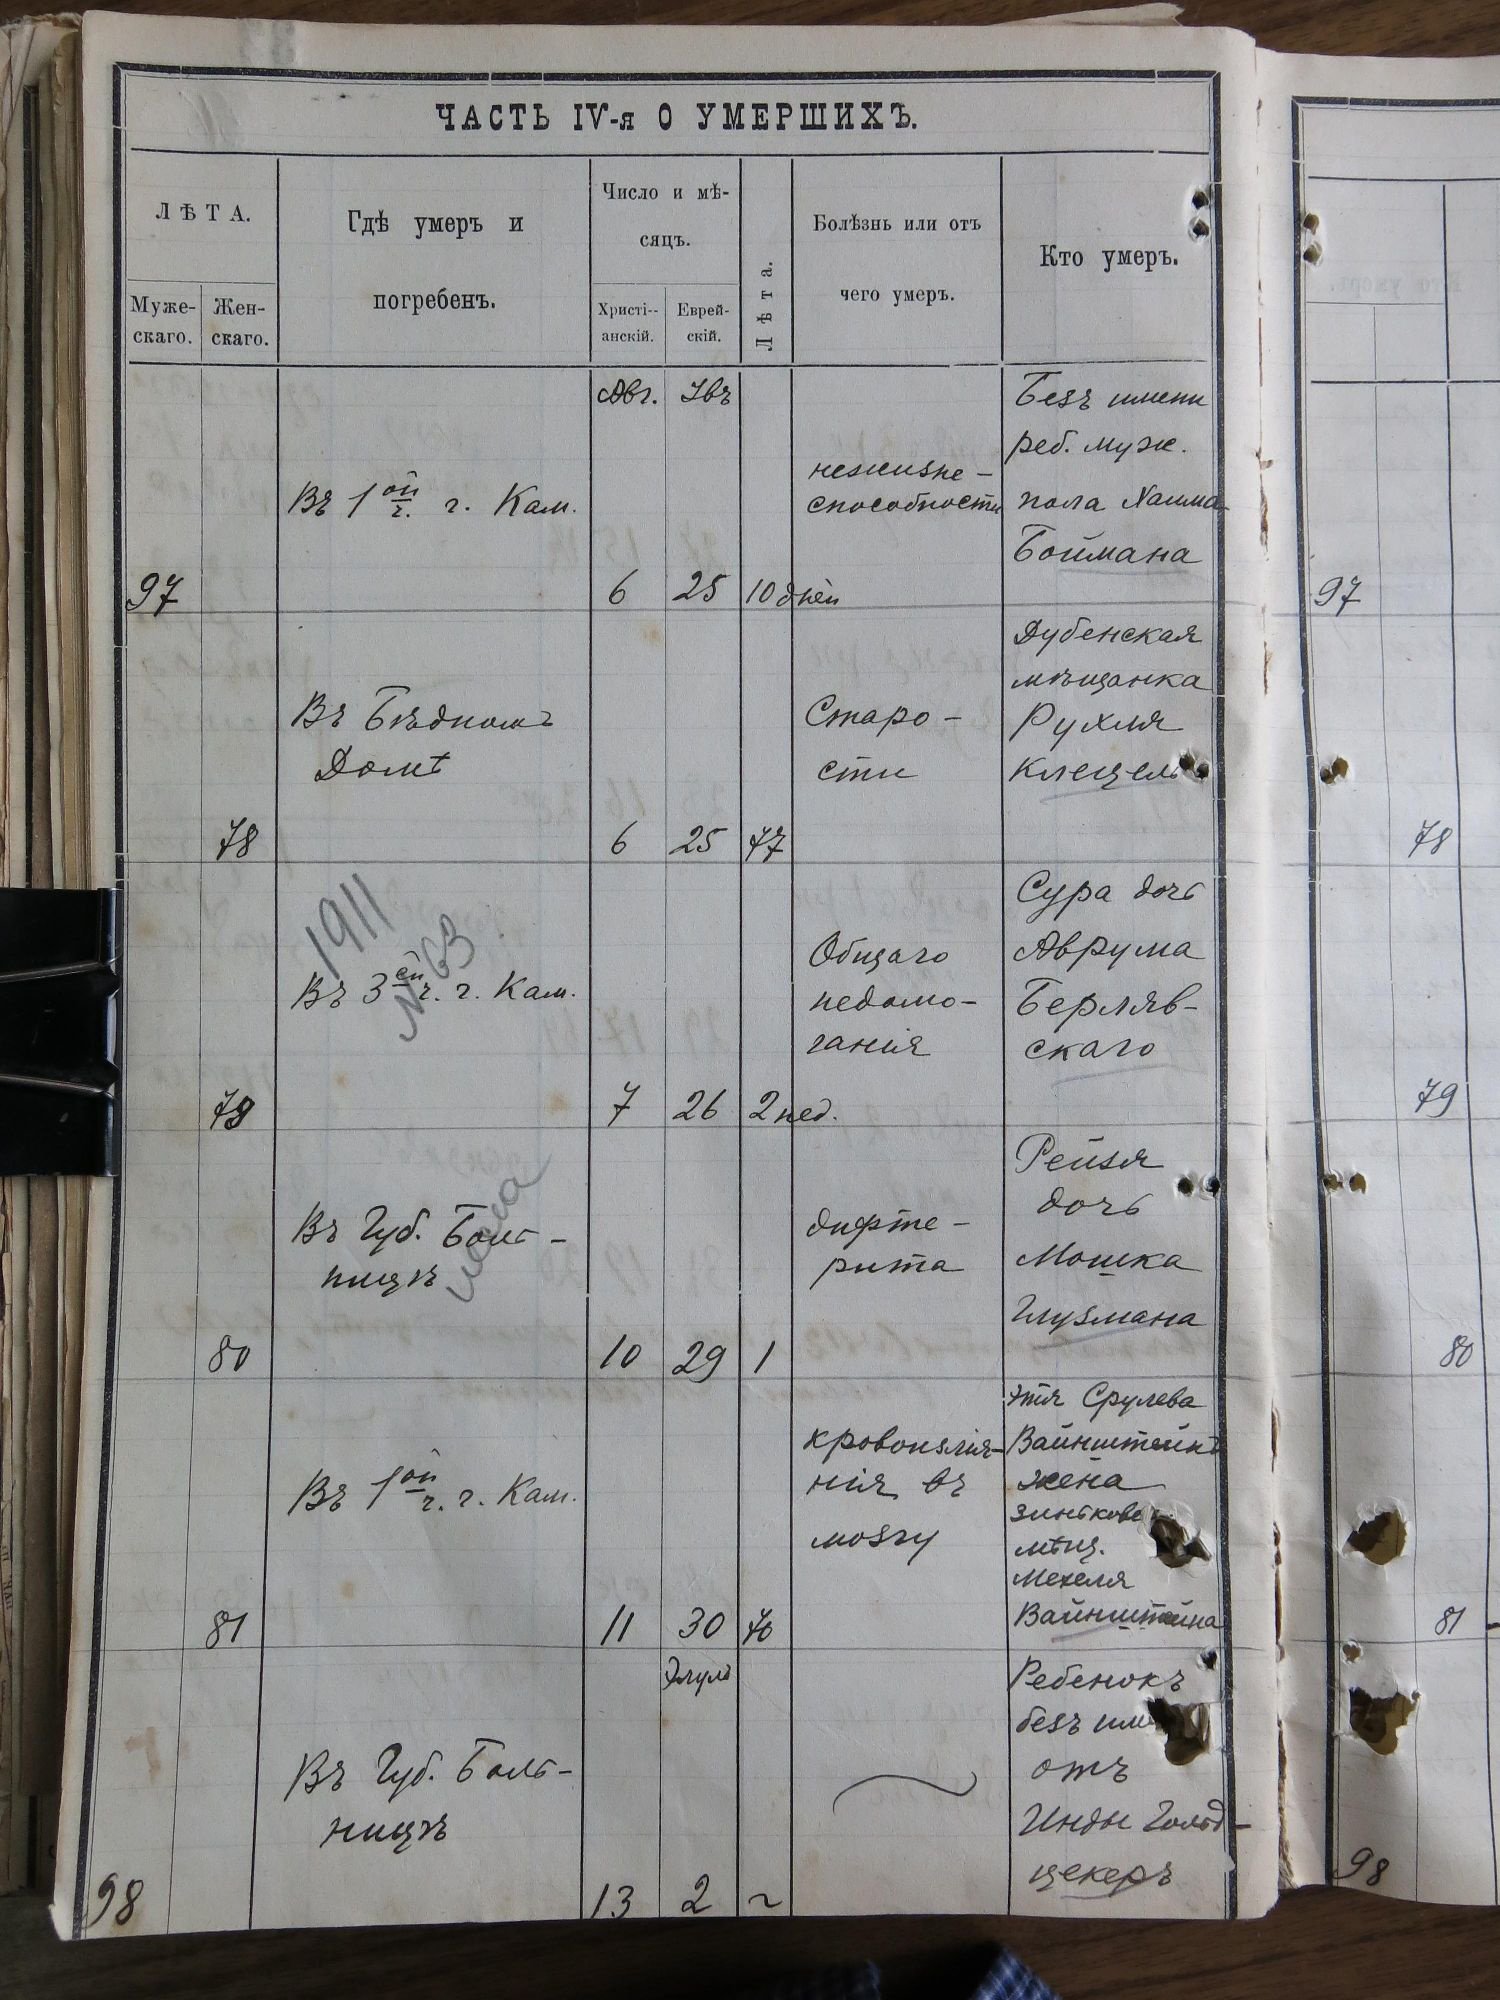 ЧАСТЬ IV-я О УМЕРШИХЪ.
ЛѢТА.
Муже-
скаго.
Жен-
скаго.
Гдѣ умеръ и
погребенъ.
Число и мѣ-
сяцъ.
Христі--
анскій.
Еврей-
скій.
Лѣта.
Болѣзнь или отъ
чего умеръ.
Кто умеръ.
97
Въ 1ой ч. г. Кам.
Авг.
6
25
10 дней
нежизне-
способности
Безъ имени
реб. муж.
пола Хаима
Боймана
97
78
Въ Бѣдномъ
Домѣ
6
25
77
Старо-
сти
Дубенская
мѣщанка
Рухля
Клецель
78
79
1911
№ 63
Въ 3ей ч. г. Кам.
7
26
2 нед.
Общаго
недомо-
ганія
Сура дочь
Аврума
Берляв-
скаго
79
80
Въ Губ. Боль-
ницѣ
10
29
1
дифте-
рита
Рейзя
дочь
Мошка
Глузмана
80
81
Въ 1ой ч. г. Кам.
11
30
70
кровоизлія-
нія въ
мозгу
Этя Срулева
Вайнштейнъ
жена
мѣщ.
Мехеля
Вайнштейна
81
98
Въ Губ. Боль-
ницѣ
Элулъ
13
2
~
Ребенокъ
безъ
отъ
Инды Гольд-
цекеръ
98